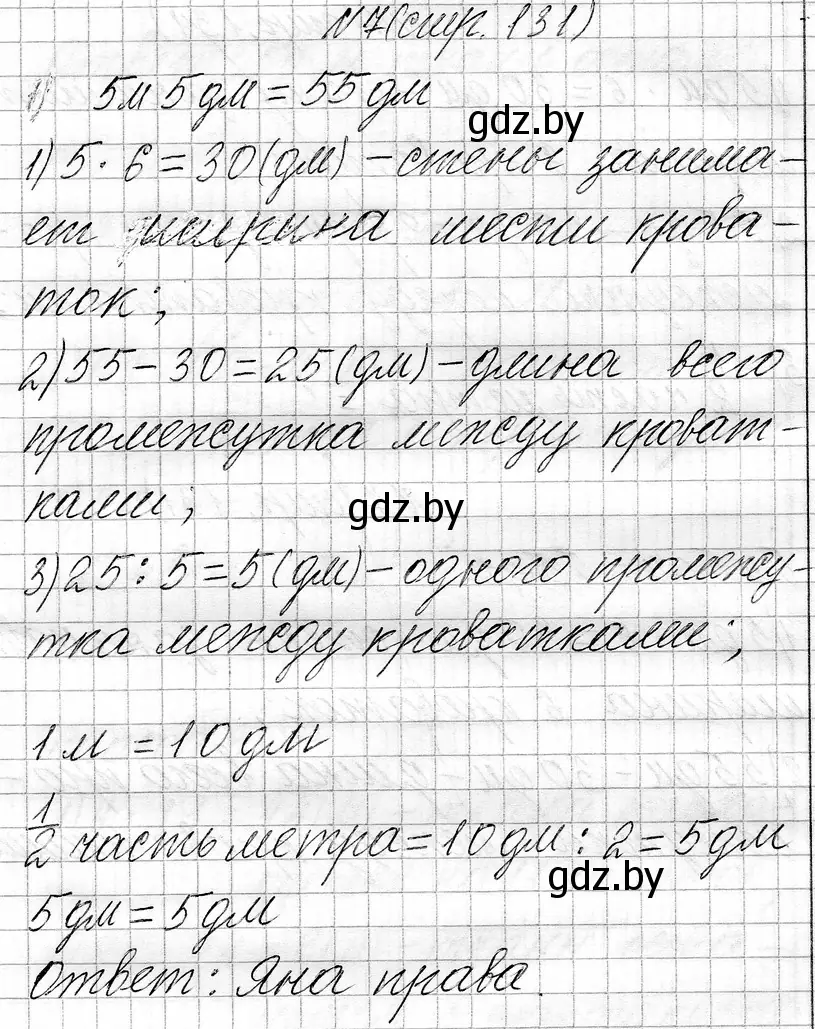 N7(стр. 131)
1) 5м 5дм = 55дм
gdz.by
1) 5 · 6 = 30(дм) - стены занима-
ет ширина шести крова-
ток;
2) 55 - 30 = 25(дм) - длина всего
промежутка между кроват-
ками;
gdz.by
3) 25 : 5 = 5(дм) - одного промежу-
тка между кроватками;
1м = 10дм
1/2 часть метра = 10дм : 2 = 5дм
gdz.by
5дм = 5дм
Ответ: Яна права.